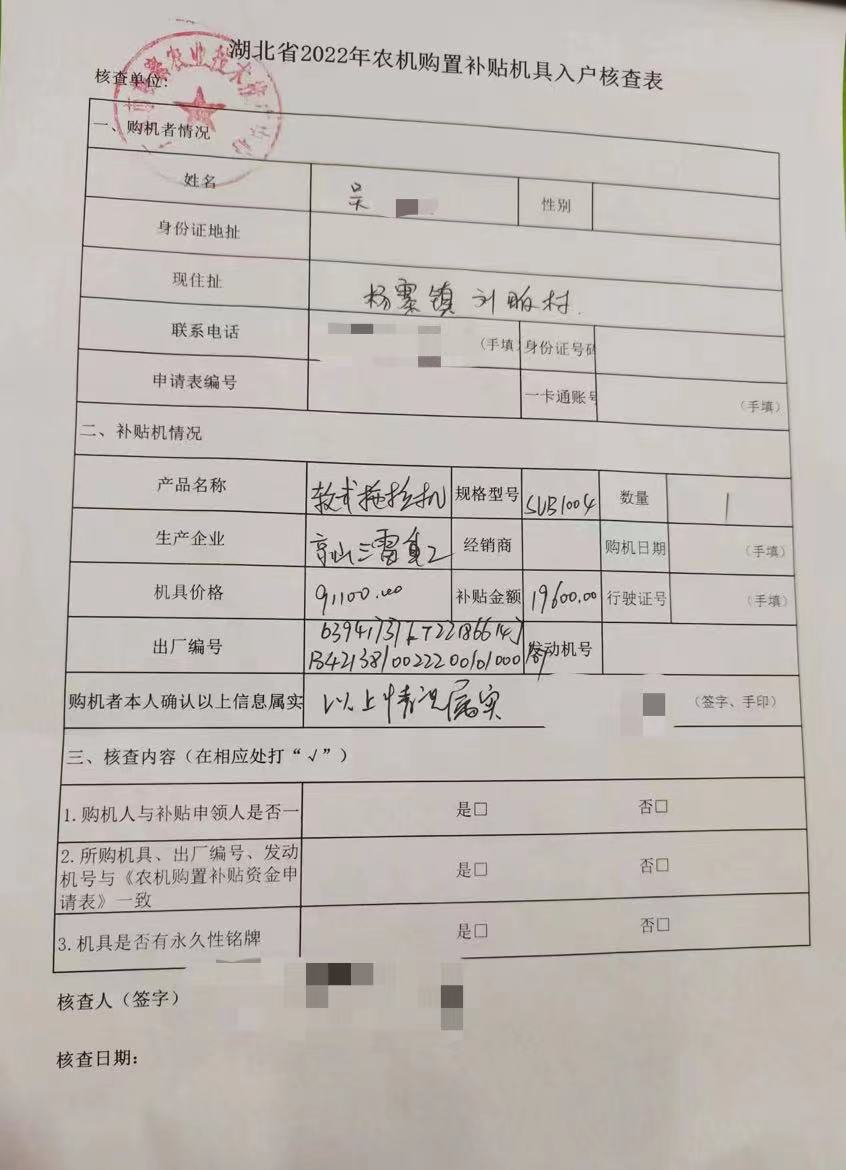 湖北省2022年农机购置补贴机具入户核查表
核查单位:
农业技术
一、购机者情况
姓名 吴 性别
身份证地址
现住址 杨寨镇
联系电话 (手填) 身份证号码
申请表编号 一卡通账号 (手填)
二、补贴机情况
产品名称 轮式拖拉机 规格型号 SUB1004 数量 1
生产企业 京山三雷重工 经销商 购机日期 (手填)
机具价格 91100.00 补贴金额 19600.00 行驶证号 (手填)
出厂编号 发动机号
购机者本人确认以上信息属实 以上情况属实 (签字、手印)
三、核查内容(在相应处打“√”)
1.购机人与补贴申领人是否一 是□ 否□
2.所购机具、出厂编号、发动
机号与《农机购置补贴资金申 是□ 否□
请表》一致
3.机具是否有永久性铭牌 是□ 否□
核查人(签字)
核查日期: